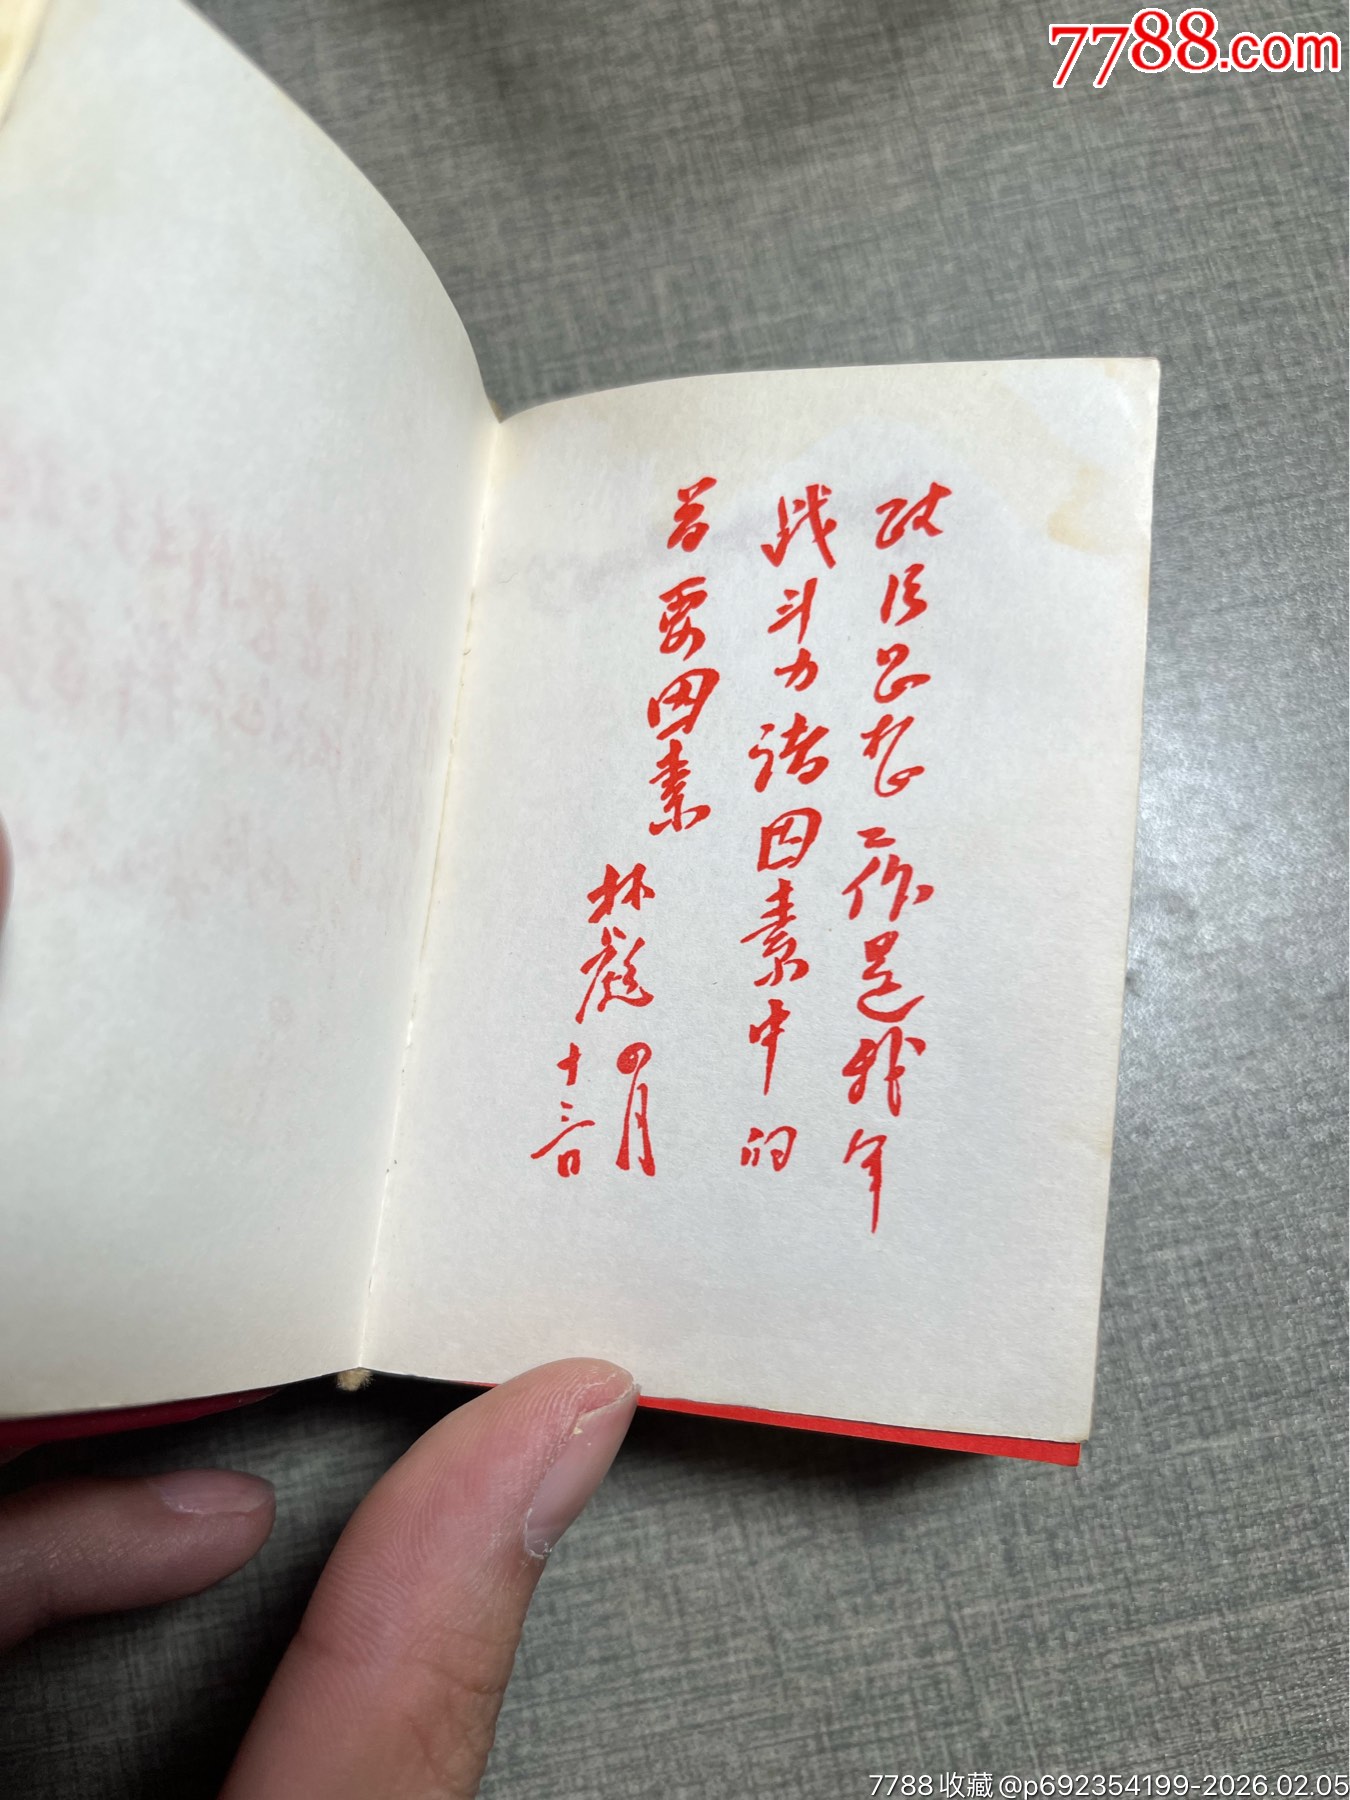 7788.com
政治思想工作是我军
战斗力诸因素中的
首要因素
林彪
四月
十三日
7788收藏@p692354199-2026.02.05